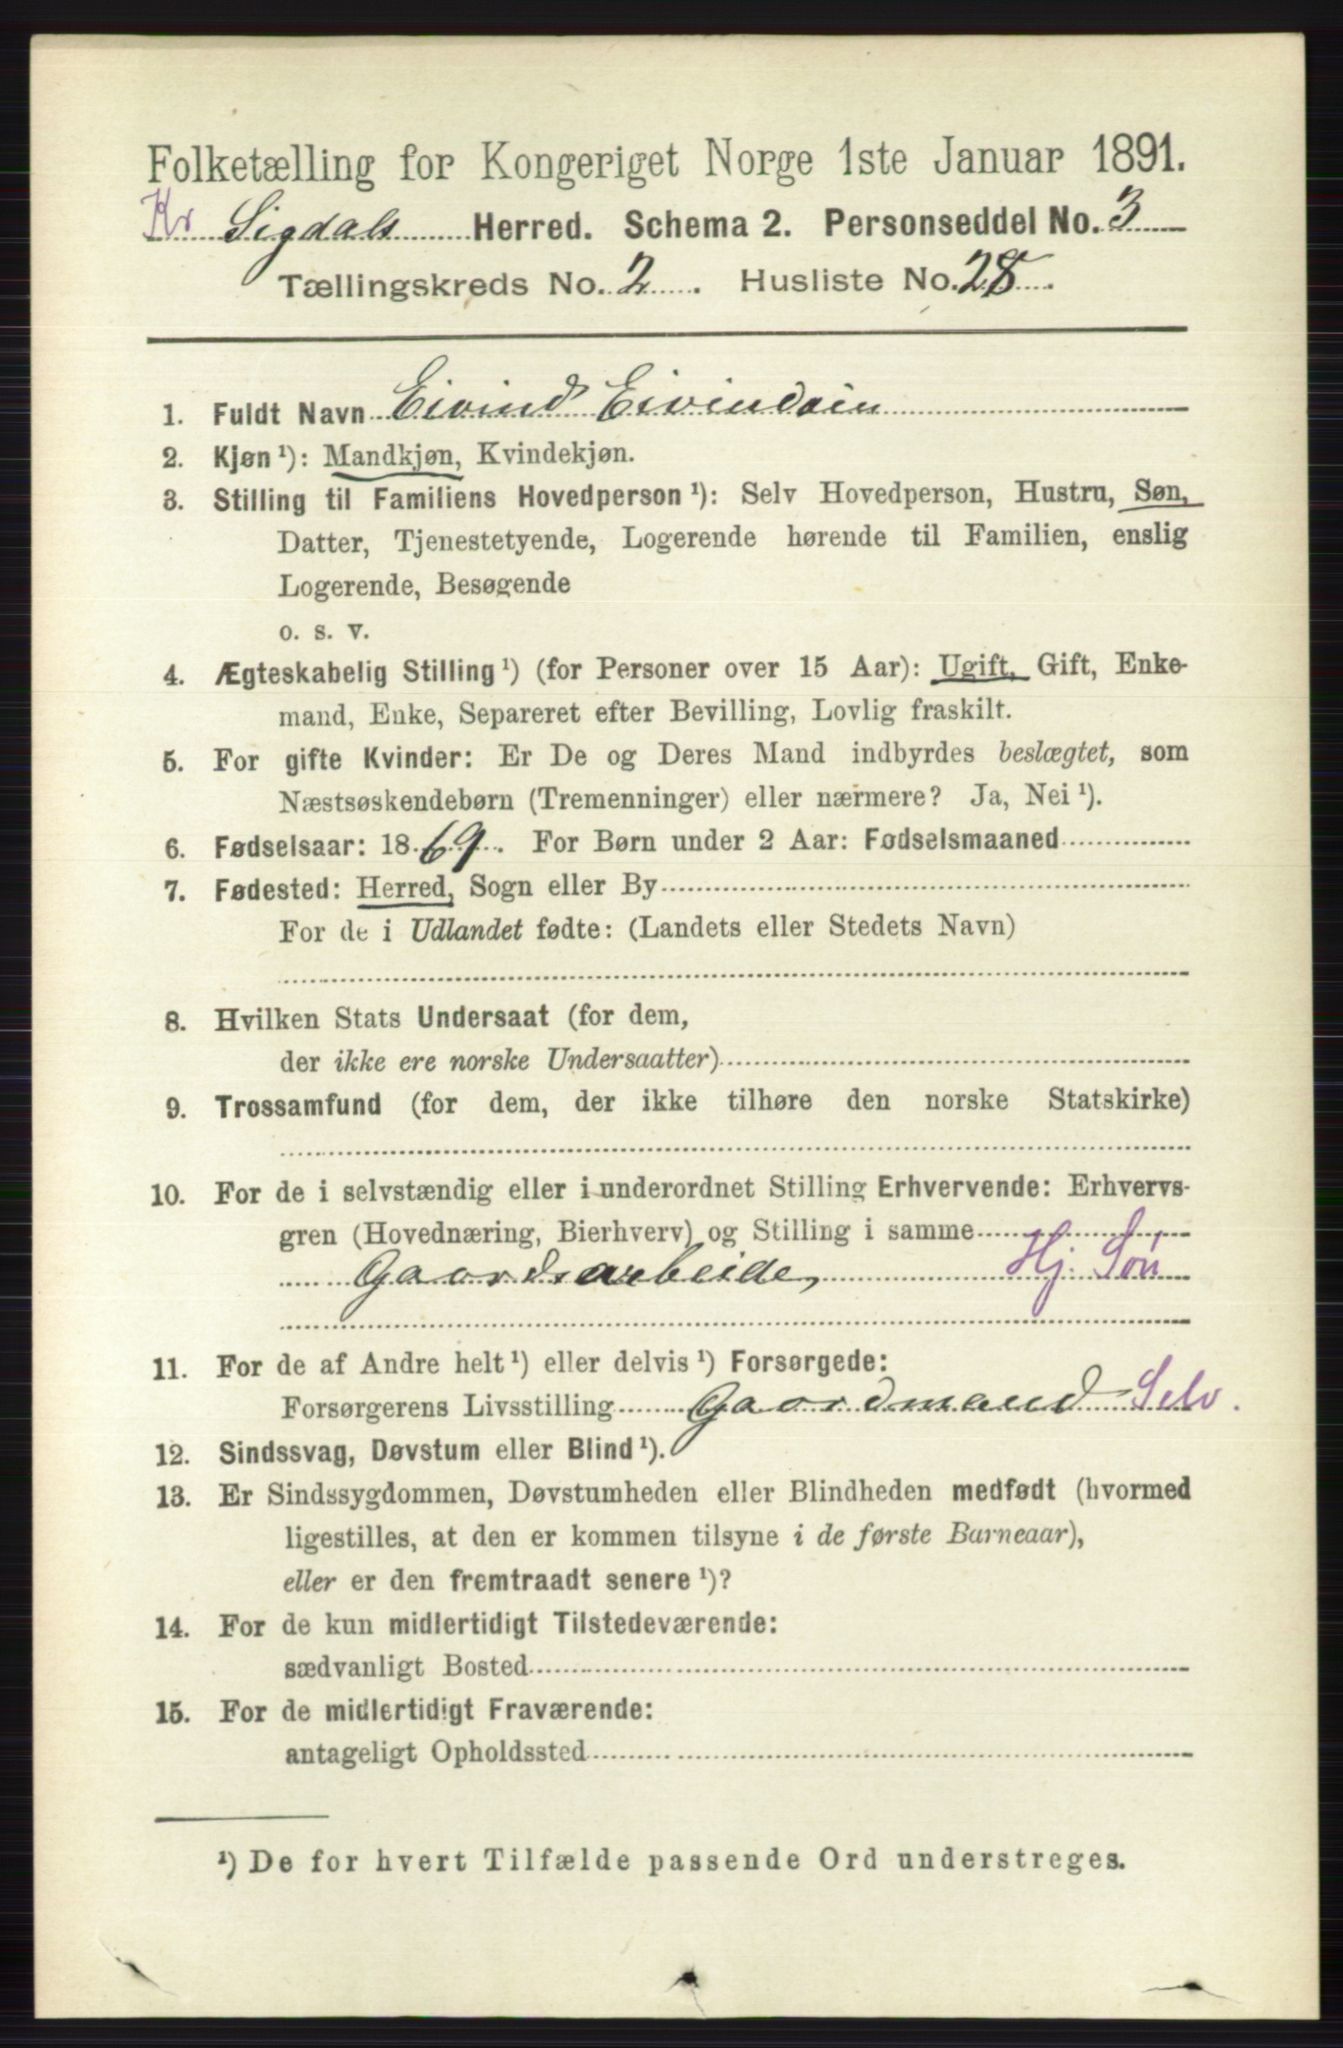 Folketælling for Kongeriget Norge 1ste Januar 1891.
Kr Sigdals Herred. Schema 2. Personseddel No. 3
Tællingskreds No. 2. Husliste No. 28.
1. Fuldt Navn Eivind Eivindsin
2. Kjøn ¹): Mandkjøn, Kvindekjøn.
3. Stilling til Familiens Hovedperson ¹): Selv Hovedperson, Hustru, Søn,
Datter, Tjenestetyende, Logerende hørende til Familien, enslig
Logerende, Besøgende
o. s. v.
4. Ægteskabelig Stilling ¹) (for Personer over 15 Aar): Ugift, Gift, Enke-
mand, Enke, Separeret efter Bevilling, Lovlig fraskilt.
5. For gifte Kvinder: Er De og Deres Mand indbyrdes beslægtet, som
Næstsøskendebørn (Tremenninger) eller nærmere? Ja, Nei ¹).
6. Fødselsaar: 1869. For Børn under 2 Aar: Fødselsmaaned
7. Fødested: Herred, Sogn eller By
For de i Udlandet fødte: (Landets eller Stedets Navn)
8. Hvilken Stats Undersaat (for dem,
der ikke ere norske Undersaatter)
9. Trossamfund (for dem, der ikke tilhøre den norske Statskirke)
10. For de i selvstændig eller i underordnet Stilling Erhvervende: Erhvervs-
gren (Hovednæring, Bierhverv) og Stilling i samme
Gaardsarbeide, Hj. Søn
11. For de af Andre helt ¹) eller delvis ¹) Forsørgede:
Forsørgerens Livsstilling Gaardmand Selv.
12. Sindssvag, Døvstum eller Blind ¹).
13. Er Sindssygdommen, Døvstumheden eller Blindheden medfødt (hvormed
ligestilles, at den er kommen tilsyne i de første Barneaar),
eller er den fremtraadt senere ¹)?
14. For de kun midlertidigt Tilstedeværende:
sædvanligt Bosted
15. For de midlertidigt Fraværende:
antageligt Opholdssted
¹) De for hvert Tilfælde passende Ord understreges.